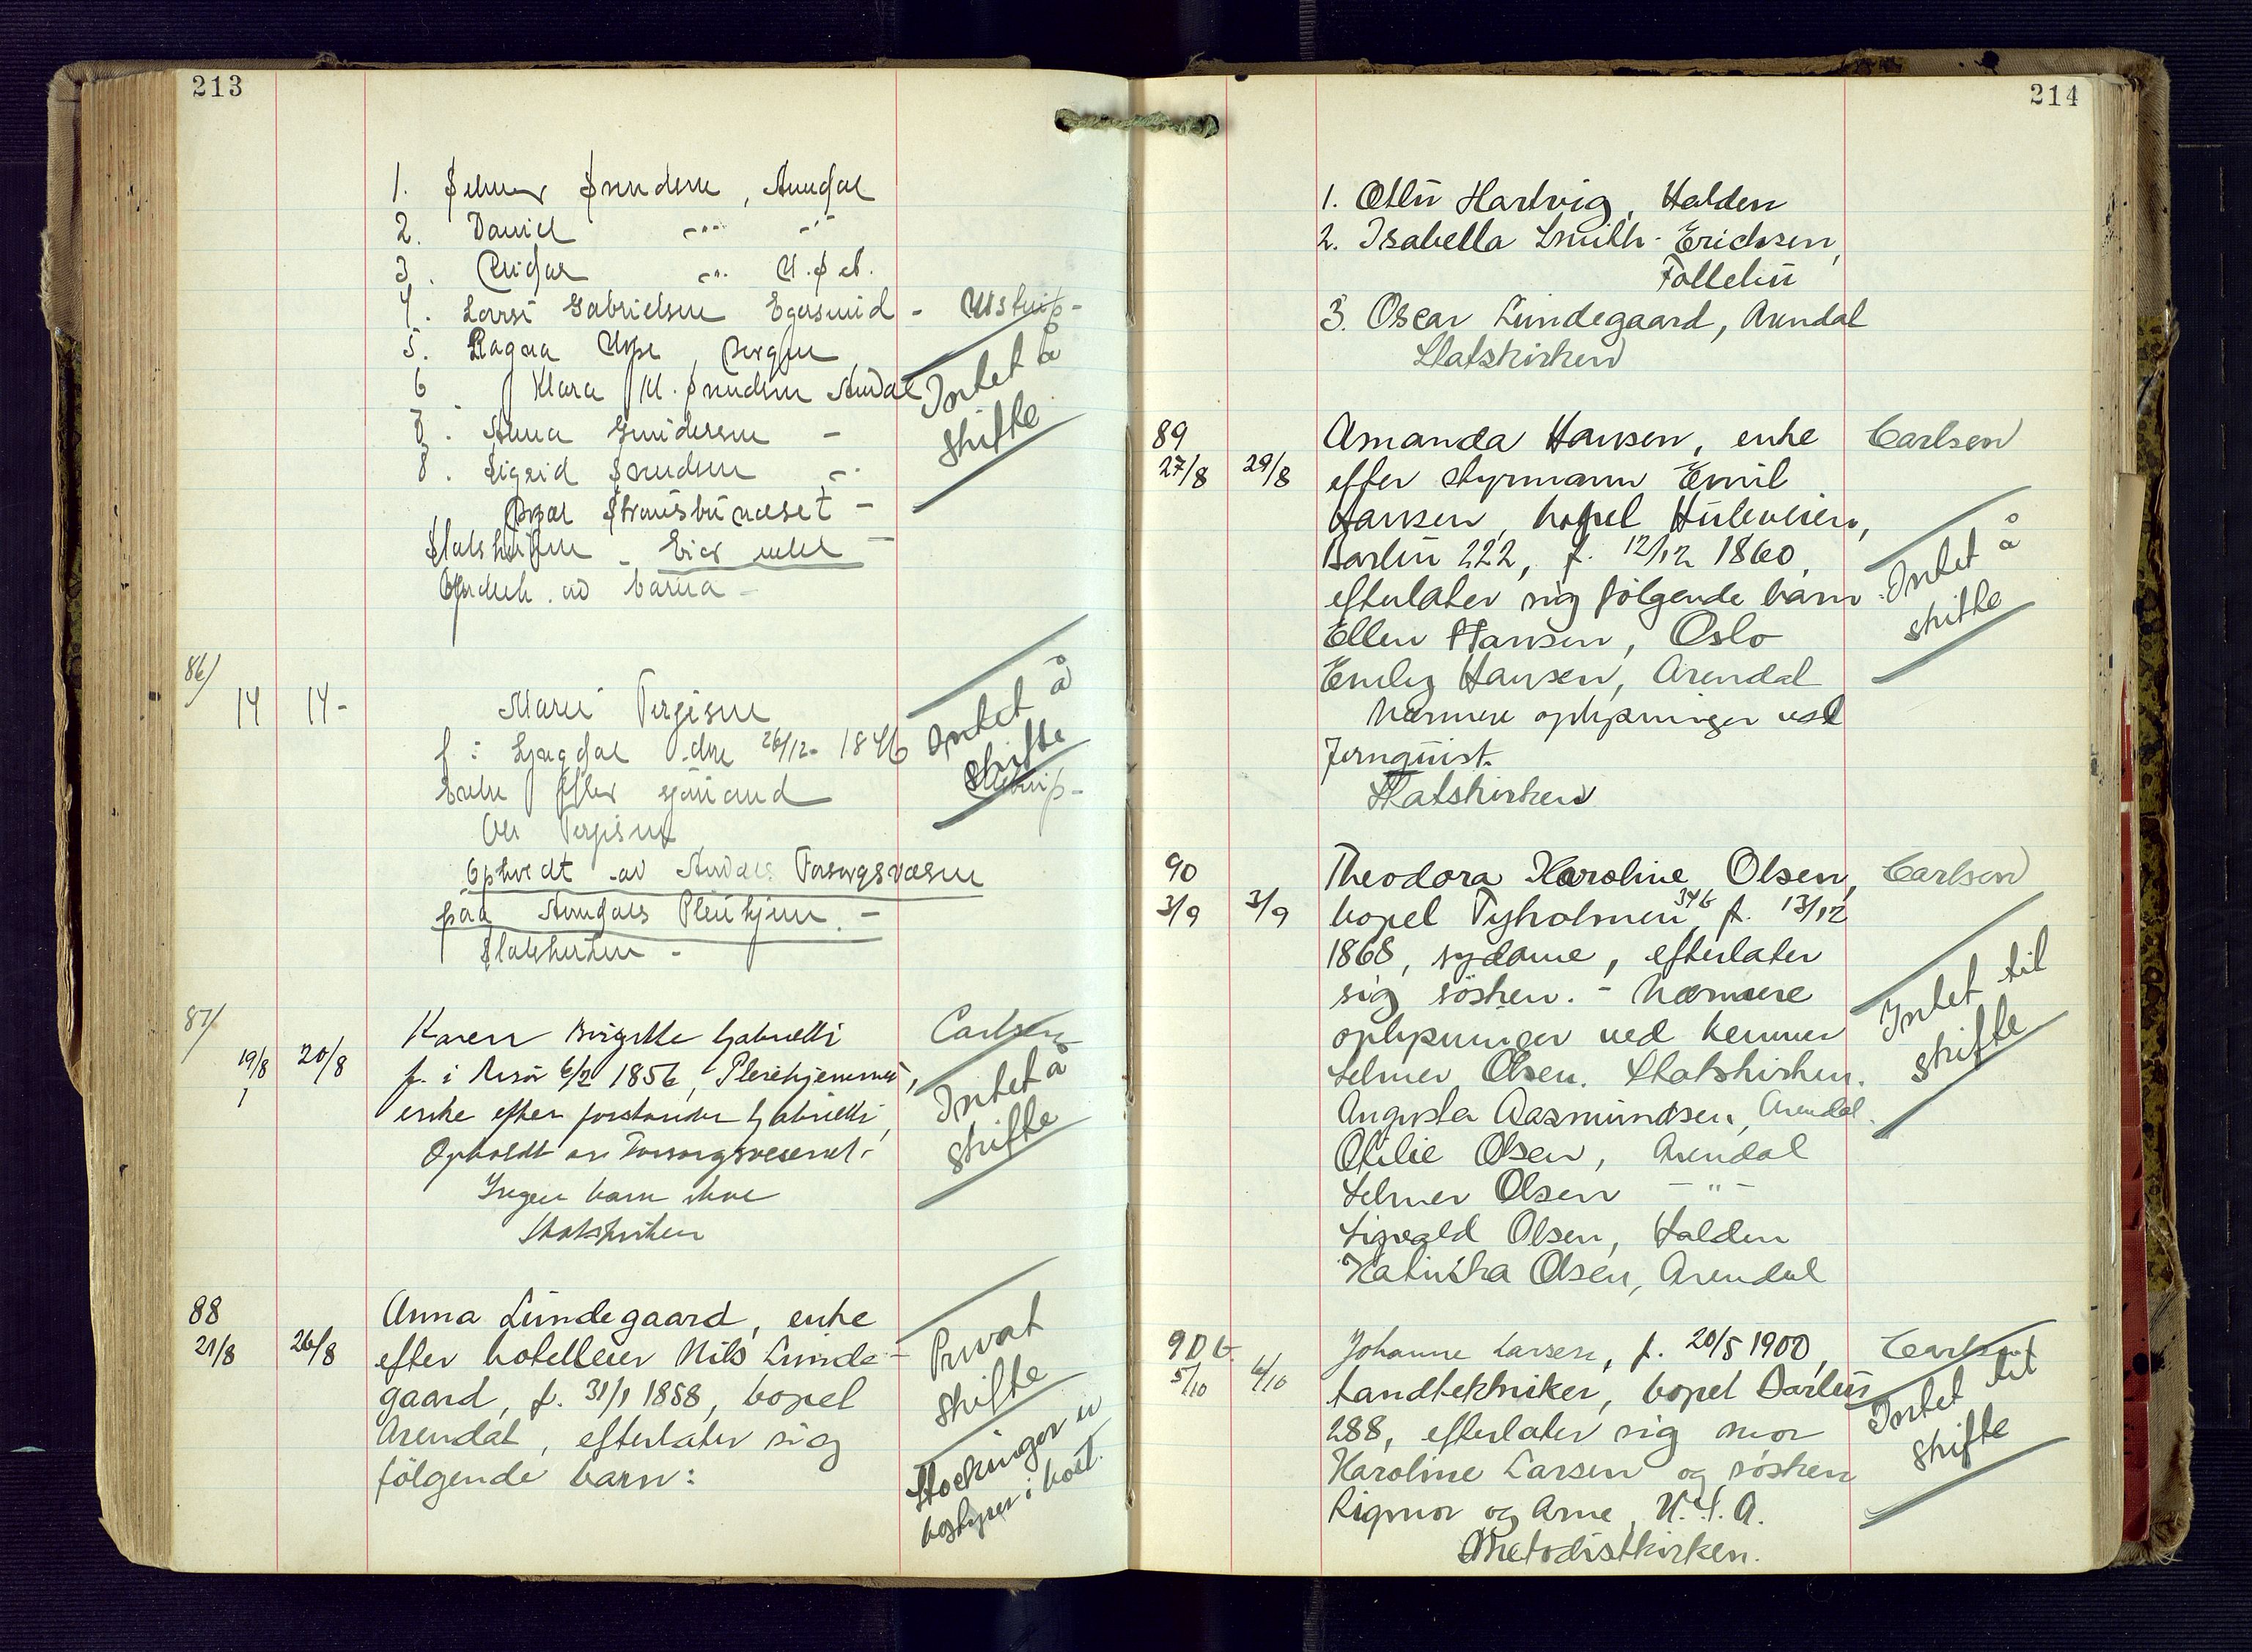 213
1. Selmer Knudsen, Arendal
2. Daniel -"- -"-
3. -"- U.S.A.
4. Gabrielsen Egersund -
5. Ragna , Bergen
Intet å
6 Klara M. Knudsen Arendal
skifte
7. Anna Gundersen -
8. Sigrid Knudsen -"-
Statskirken - Eier intet -
av barna -
86/
14 14-
Marie Terjesen
Intet å
26/12- 1846
skifte
Enke efter sjømand
Ole Terjesen
Opholdt av Arendals Forsorgsvæsen
paa Arendals Pleiehjem. -
Statskirken -
87/
19/8 20/8
Karen Birgitte Gabrielli
Carlsen
f. i Risør 6/2 1856, Pleiehjemmet,
Intet å
enke efter forstander Gabrielli,
skifte
Opholdt av Forsorgsvesenet.
Ingen barn
Statskirken
88
21/8 26/8
Anna Lundegaard, enke
efter hotelleier Nils Lunde-
Privat
gaard, f. 31/1 1858, bopel
skifte
Arendal, efterlater sig
følgende barn:
214
1. Hartvig, Halden
2. Isabella Smith-Erichsen,
3. Oscar Lundegaard, Arendal
Statskirken
89
27/8 29/8
Amanda Hansen, enke
Carlsen
efter styrmann Emil
Hansen, bopel Huleveien,
Barbu 222, f. 12/12 1860,
Intet å
efterlater sig følgende barn
skifte
Ellen Hansen, Oslo
Emily Hansen, Arendal
Nærmere oplysninger ved
Jernquist.
Statskirken
90
3/9 3/9
Theodora Karoline Olsen,
Carlsen
bopel Tyholmen 346 f. 13/12
1868, sydame, efterlater
sig søsken. - Nærmere
Intet til
oplysninger ved kemner
skifte
Selmer Olsen. Statskirken.
Augusta Aasmundsen, Arendal.
Otilie Olsen, Arendal
Selmer Olsen -"-
Sigvald Olsen, Halden
Katinka Olsen, Arendal
90 b
5/10 6/10
Johanne Larsen, f. 20/5 1900,
Carlsen
tandtekniker, bopel Barbu
Intet til
288, efterlater sig mor
skifte
Karoline Larsen og søsken
Rigmor og Arne, U.S.A.
Metodistkirken.